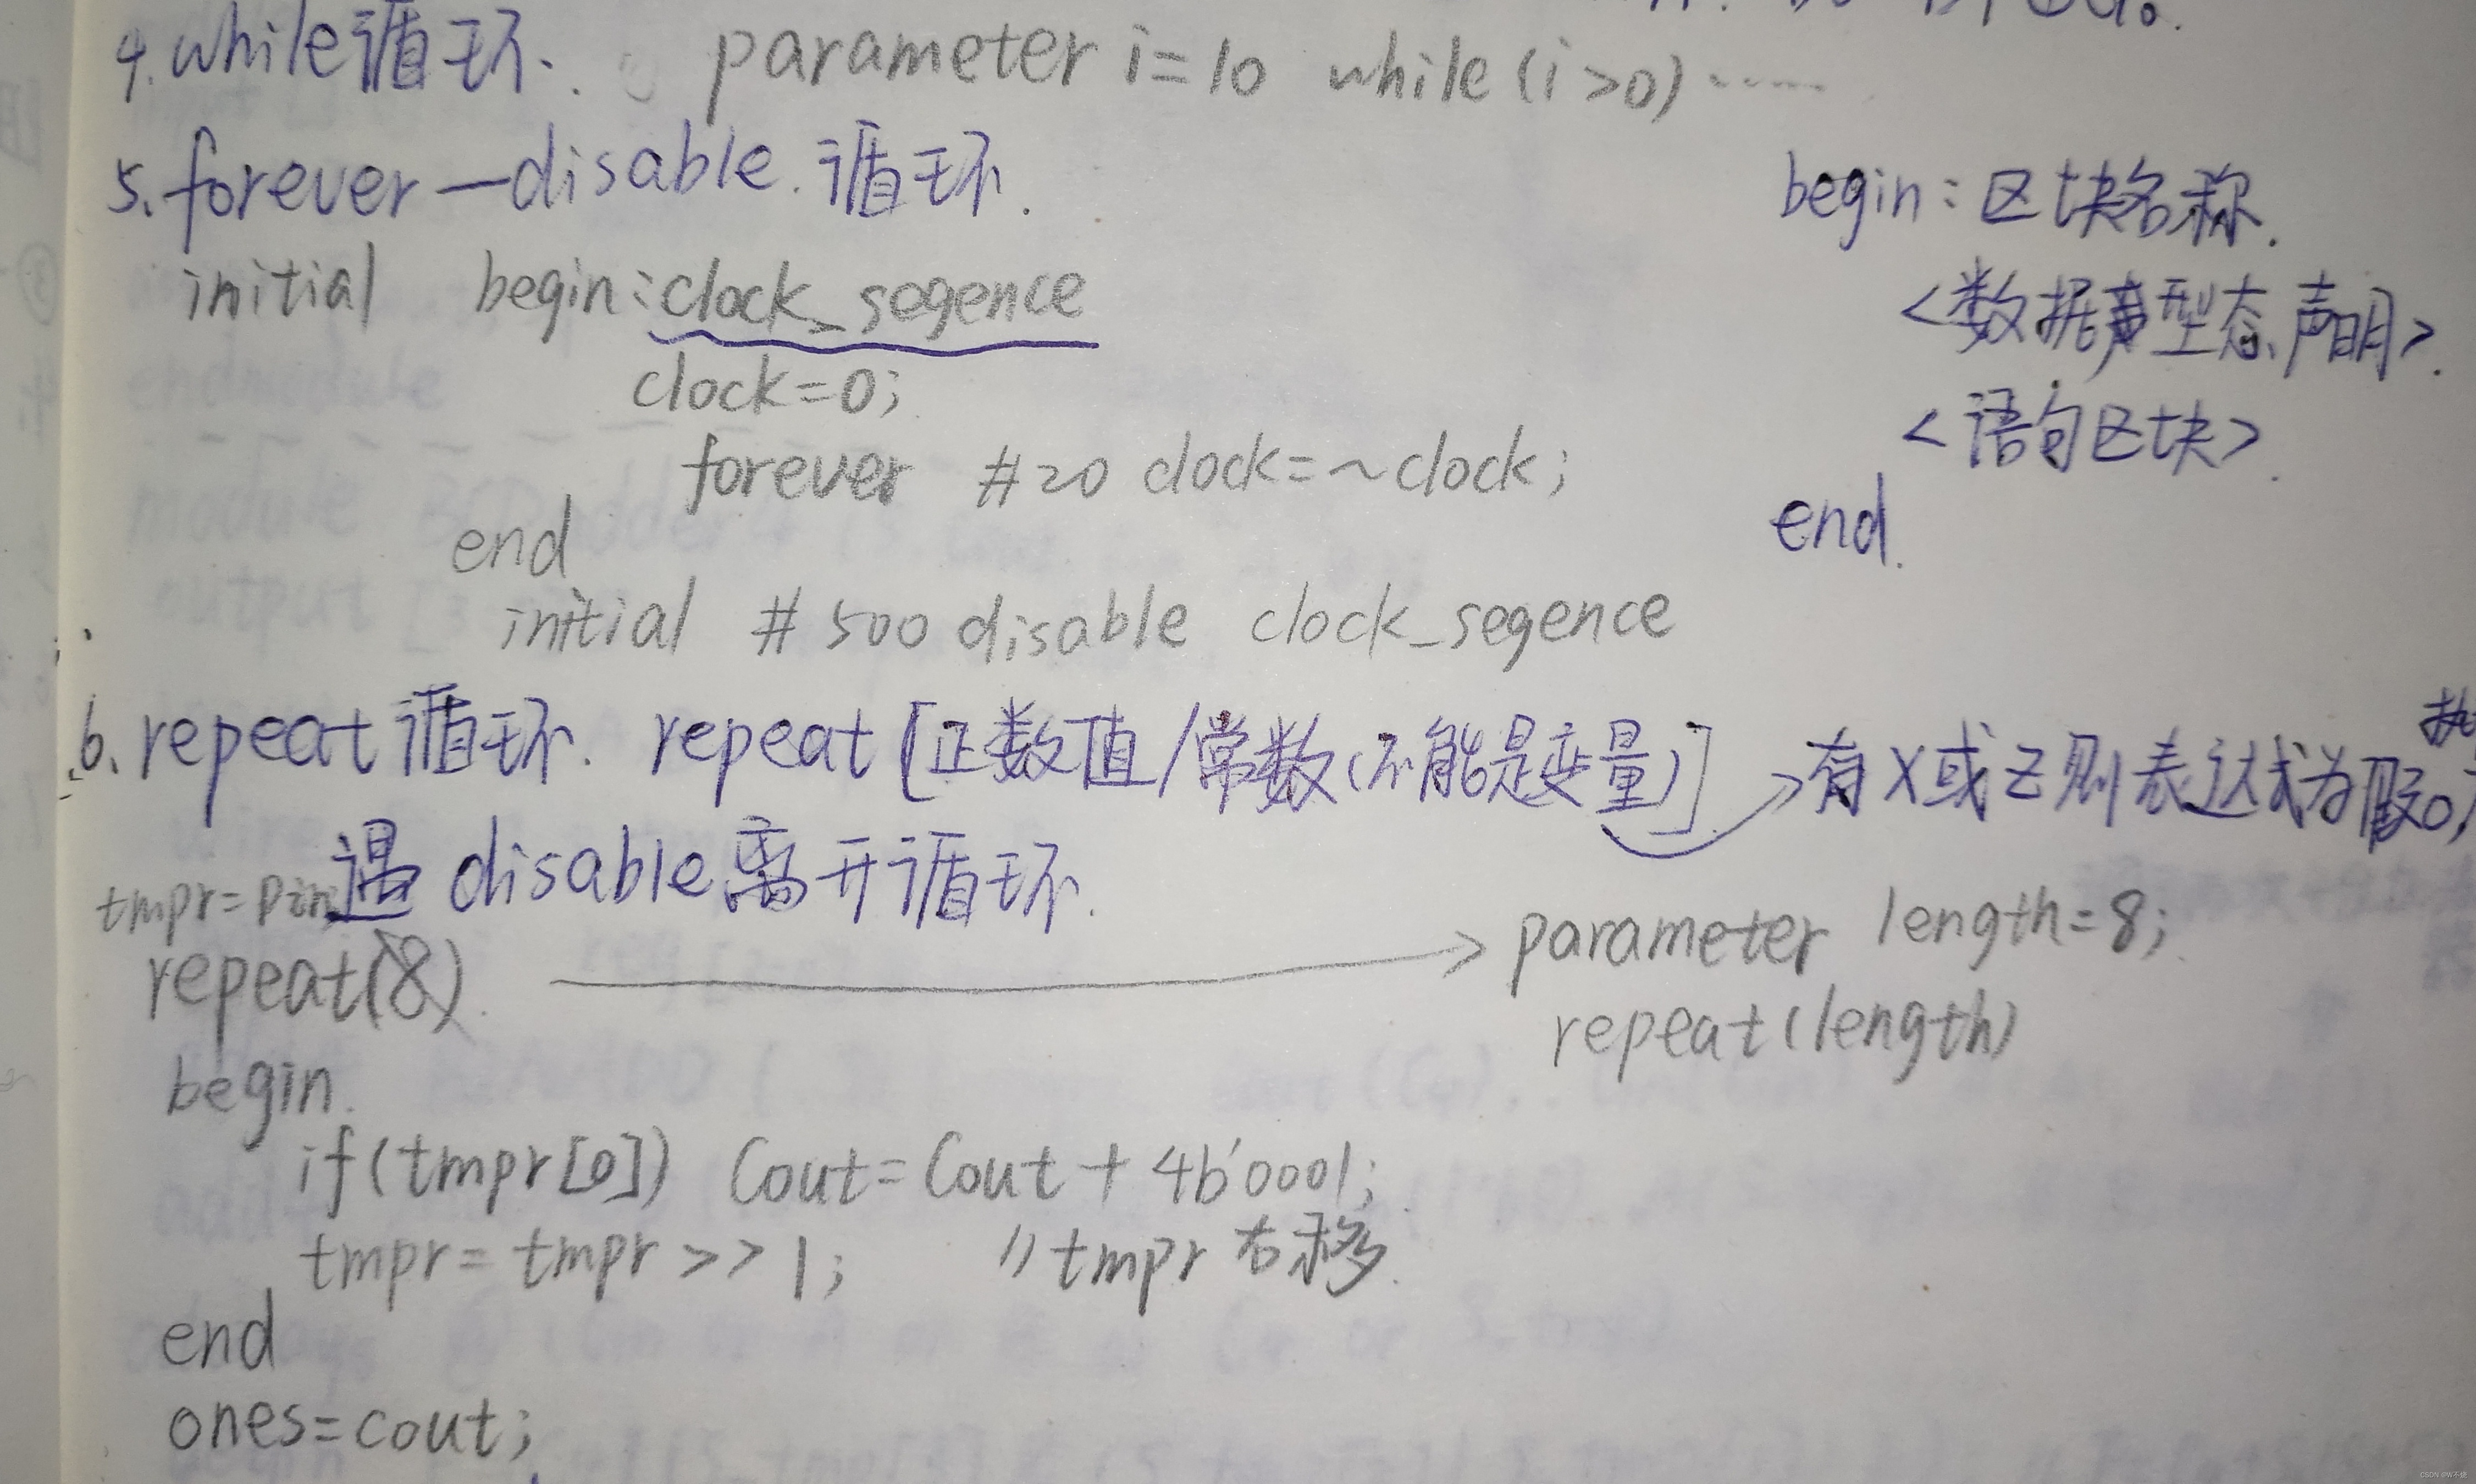 4. while循环. parameter i=10 while(i>0)……
5. forever—disable.循环.
begin:区块名称.
initial begin:clock_segence
<数据型态声明>.
clock=0;
<语句区块>.
forever #20 clock=~clock;
end.
end
initial #500 disable clock_segence
6. repeat循环. repeat[正数值/常数(不能是变量)] →有X或Z则表达式为假0,
遇disable离开循环.
tmpr=Pin
repeat(8) → parameter length=8;
repeat(length)
begin.
if(tmpr[0]) Cout=Cout+4b'0001;
tmpr=tmpr>>1; //tmpr右移.
end
ones=cout;
CSDN @W不饶